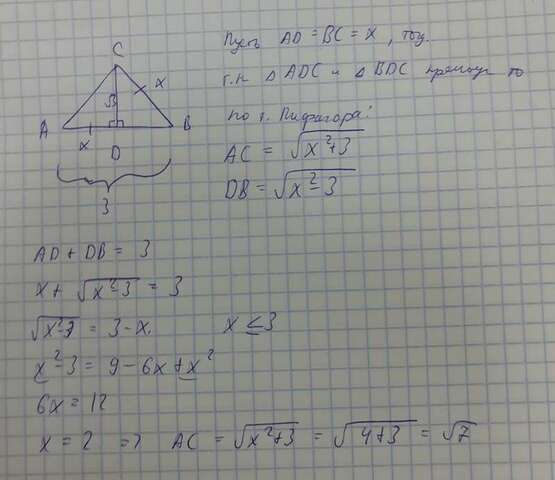 C
x
√3
A
B
x
D
3
Пусть AD = BC = x, тог.
т.к △ ADC и △ BDC прямоуг то
по т. Пифагора:
AC = √(x²+3)
DB = √(x²-3)
AD + DB = 3
x + √(x²-3) = 3
√(x²-3) = 3 - x, x ≤ 3
x² - 3 = 9 - 6x + x²
6x = 12
x = 2 => AC = √(x²+3) = √(4+3) = √7